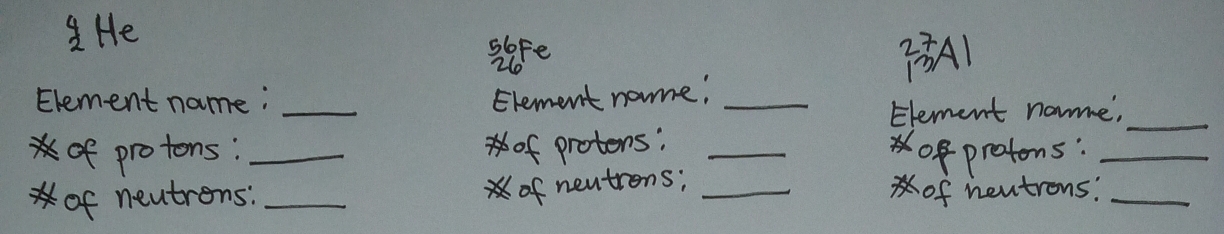 ⁴₂He
Element name: ____
# of protons: ____
# of neutrons: ____
⁵⁶₂₆Fe
Element name: ____
# of protons: ____
# of neutrons: ____
²⁷₁₃Al
Element name: ____
# of protons: ____
# of neutrons: ____